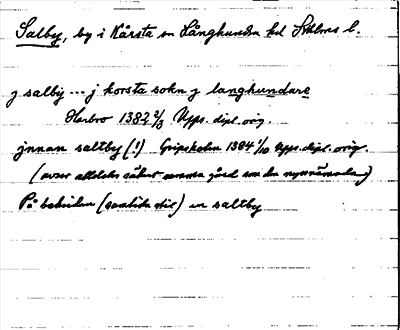 Salby, by i Kårsta sn Långhundra hd Sthlms l.
j salby ... j korsta sokn j langhundare
Harbro 1382 2/3 Upps. dipl. orig.
jnnan saltby (!) Gripsholm 1384 1/10 Upps. dipl. orig.
(avser alldeles säkert samma gård som den nyssnämnda)
På baksidan (samtida stil) en saltby